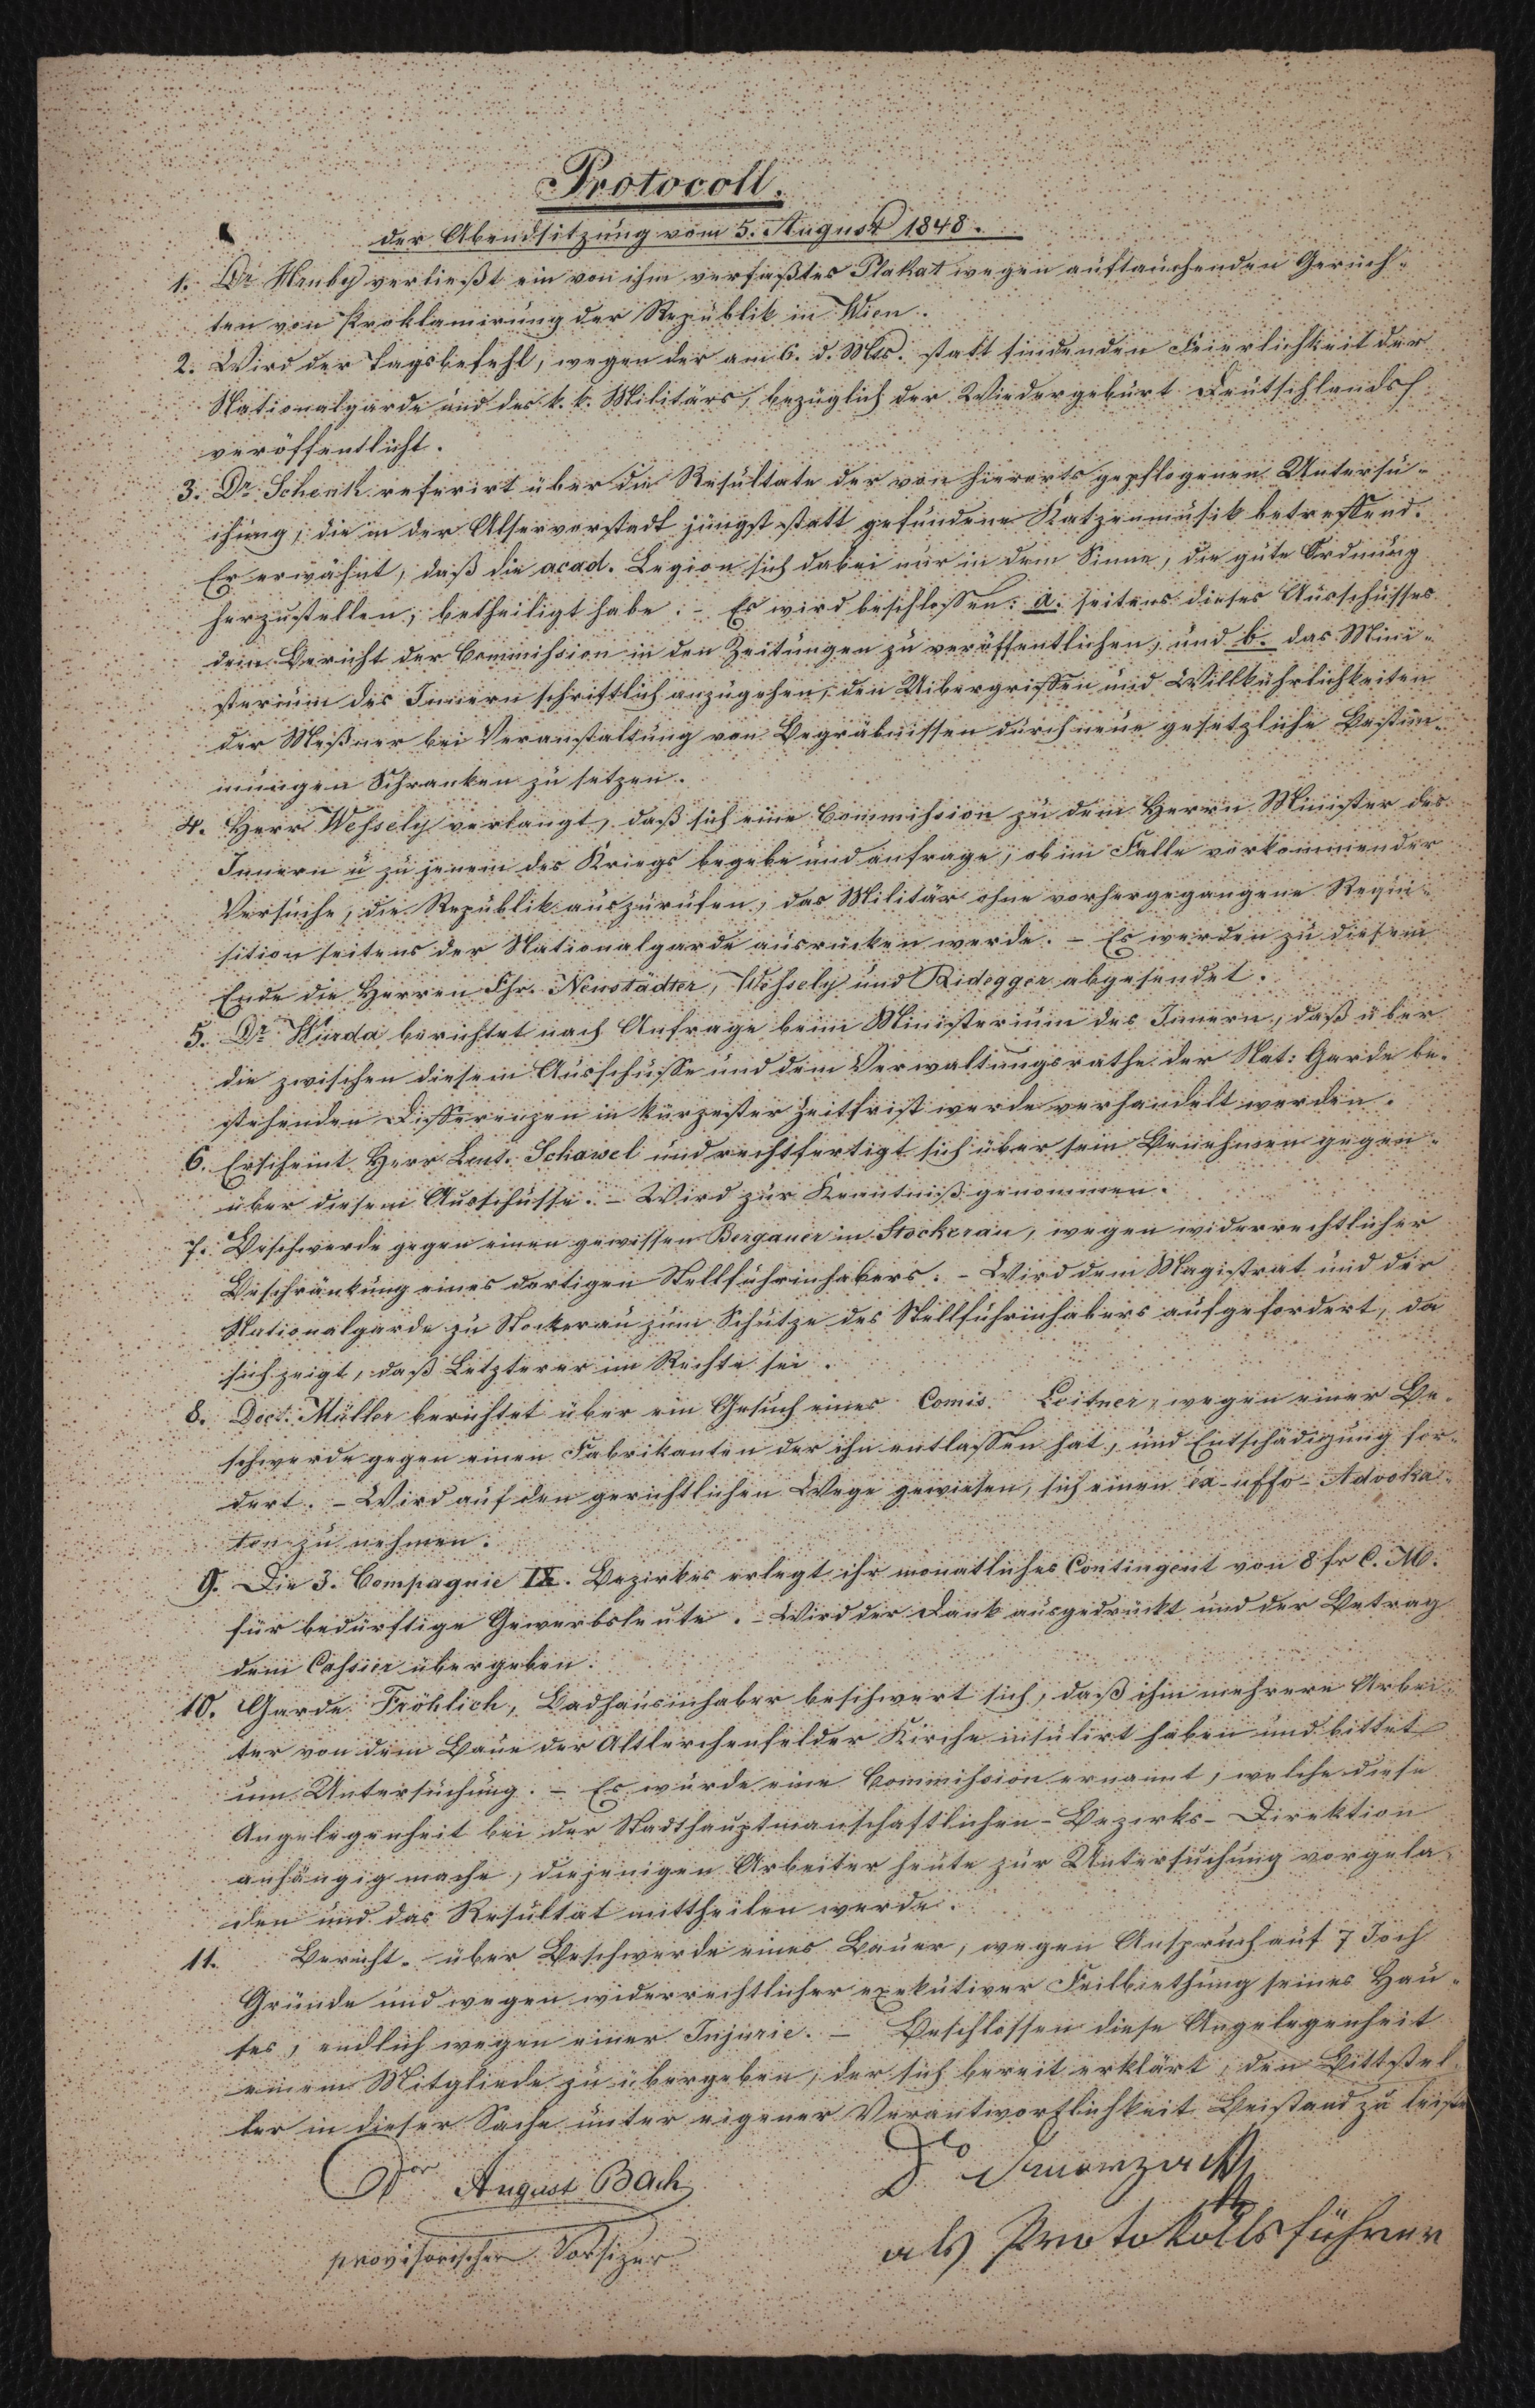 Protocoll.
der Abendsitzung vom 5. August 1848.
1. Dr Hruby verließt ein von ihm verfaßtes Plakat wegen auftauchenden Gerüch-
ten von Proklamirung der Republik in Wien.
2. Wird der Tagsbefehl, wegen der am 6. d. Mts. statt findenden Feierlichkeit der
Nationalgarde und des k. k. Militärs, bezüglich der Wiedergeburt Deutschlands
veröffentlicht.
3. Dr. Schenk referirt über die Resultate der von hierorts gepflogenen Untersu-
chung, die in der Alservorstadt jüngst statt gefundene Katzenmusik betreffend.
Er erwähnt, daß die acad. Legion sich dabei nur in dem Sinne, die gute Ordnung
herzustellen, betheiligt habe. - Es wird beschlossen: a. seitens dieses Ausschusses
den Bericht der Commission in den Zeitungen zu veröffentlichen, und b. das Mini-
sterium des Innern schriftlich anzugehen, den Uibergriffen und Willkührlichkeiten
der Meßner bei Veranstaltung von Begräbnissen durch neue gesetzliche Bestim-
mungen Schranken zu setzen.
4. Herr Wessely verlangt, daß sich eine Commission zu dem Herrn Minister des
Innern u zu jenem des Kriegs begebe und anfrage, ob im Falle vorkommender
Versuche, die Republik auszurufen, das Militär ohne vorhergegangene Requi-
sition seitens der Nationalgarde ausrücken werde. - Es werden zu diesem
Ende die Herren Fhr. Neustädter, Wessely und Ridegger abgesendet.
5. Dr Wurda berichtet nach Anfrage beim Ministerium des Innern, daß über
die zwischen diesem Ausschusse und dem Verwaltungsrathe der Nat: Garde be-
stehenden Differenzen in kürzester Zeitfrist werde verhandelt werden.
6. Erscheint Herr Leut. Schawel und rechtfertigt sich über sein Benehmen gegen-
über diesem Ausschusse. - Wird zur Kenntniß genommen.
7. Beschwerde gegen einen gewissen Bergauer in Stockerau, wegen widerrechtlicher
Beschränkung eines dortigen Stellfuhrinhabers. - Wird dem Magistrat und der
Nationalgarde zu Stockerau zum Schutze des Stellfuhrinhabers aufgefordert, da
sich zeigt, daß Letzterer im Rechte sei.
8. Doct. Müller berichtet über ein Gesuch eines Comis. Leitner, wegen einer Be-
schwerde gegen einen Fabrikanten der ihn entlassen hat, und Entschädigung for-
dert. - Wird auf den gerichtlichen Wege gewiesen, sich einen ex-uffo-Advoka-
ten zu nehmen.
9. Die 3. Compagnie IX. Bezirkes erlegt ihr monatliches Contingent von 8 fr C. M.
für bedürftige Gewerbsleute. - Wird der Dank ausgedrückt und der Betrag
dem Cassier übergeben.
10. Garde Fröhlich, Badhausinhaber beschwert sich, daß ihm mehrere Arbei-
ter von dem Baue der Altlerchenfelder Kirche insulirt haben und bittet
um Untersuchung. - Es wurde eine Commission ernannt, welche diese
Angelegenheit bei der Stadthauptmanschaftlichen-Bezirks-Direktion
anhängig mache, diejenigen Arbeiter heute zur Untersuchung vorgela-
den und das Resultat mittheilen werde.
11. Bericht über Beschwerde eines Bauer, wegen Anspruch auf 7 Joch
Gründe und wegen widerrechtlicher exekutiver Feilbiethung seines Hau-
ses, endlich wegen einer Injurie. - Beschlossen diese Angelegenheit
einem Mitgliede zu übergeben, der sich bereit erklärt, den Bittstel-
ler in dieser Sache unter eigener Verantwortlichkeit Beistand zu leisten
Dor August Bach
provisorischer Vorsizer
als Protokollsführer